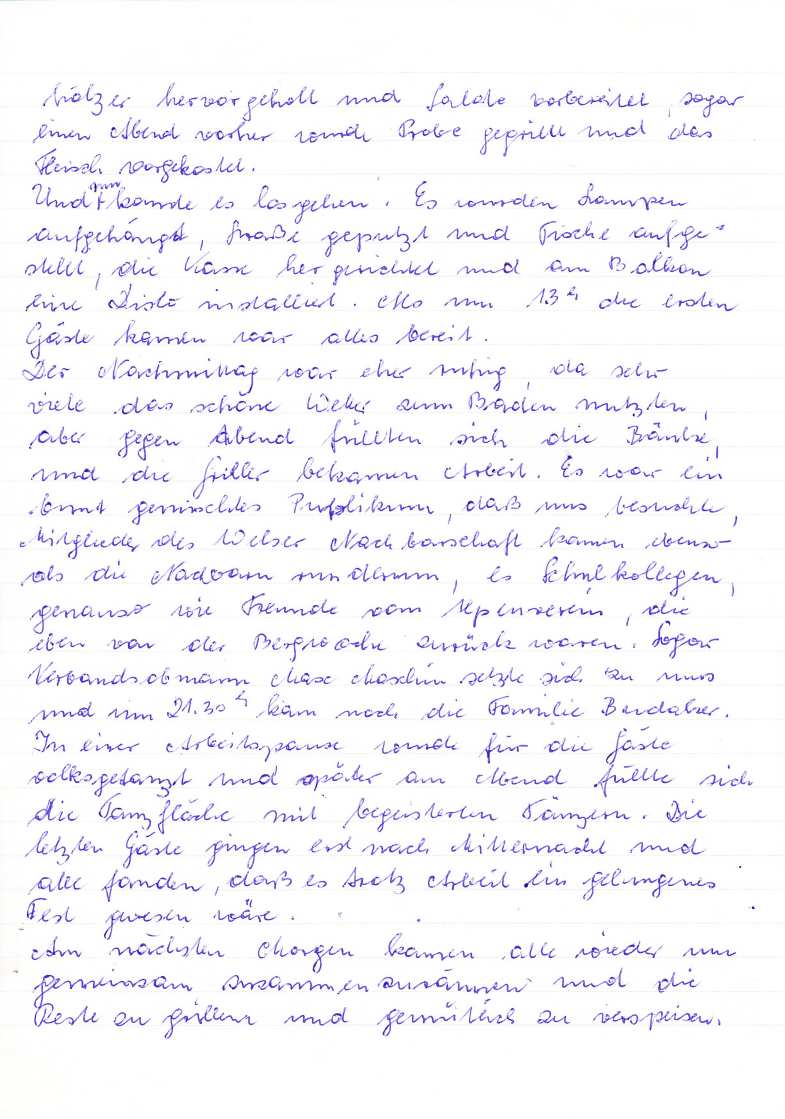 hölzer hervorgeholt und Salate vorbereitet, sogar
einen Abend vorher wurde Probe gegrillt und das
Fleisch vorgekostet.
Und nun konnte es losgehen. Es wurden Lampen
aufgehängt, Straße geputzt und Tische aufge=
stellt, die Kasse hergerichtet und am Balkon
eine Disko installiert. Als um 13 h die ersten
Gäste kamen war alles bereit.
Der Nachmittag war eher ruhig, da sehr
viele das schöne Wetter zum Baden nutzten,
aber gegen Abend füllten sich die Bänke,
und die Griller bekamen Arbeit. Es war ein
bunt gemischtes Publikum, daß uns besuchte,
Mitglieder der Welser Nachbarschaft kamen ebenso
als die Nachbarn rundherum, es Schulkollegen,
genauso wie Freunde vom Alpenverein, die
eben von der Bergwoche zurück waren. Sogar
Verbandsobmann setzte sich zu uns
und um 21.30 h kam noch die Familie
In einer Arbeitspause wurde für die Gäste
volksgetanzt und später am Abend füllte sich
die Tanzfläche mit begeisterten Tänzern. Die
letzten Gäste gingen erst nach Mitternacht und
alle fanden, daß es trotz Arbeit ein gelungenes
Fest gewesen wäre.
Am nächsten Morgen kamen alle wieder um
gemeinsam zusammenzuräumen und die
Reste zu grillen und gemütlich zu verspeisen.